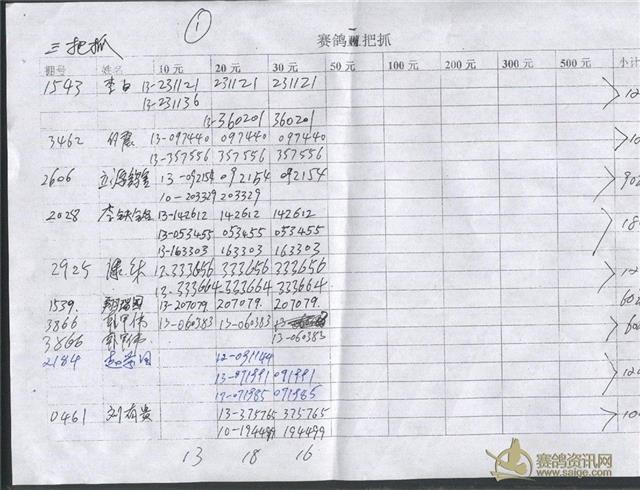 ①
三把抓
赛鸽 把抓
棚号 姓名 10元 20元 30元 50元 100元 200元 300元 500元 小计
1543 李白 13-231121 231121 231121
13-231136
13-360201 360201
3462 13-097440 097440 097440
13-357556 357556 357556
2606 13-092154 092154 092154
902
10-203329 203329
2028 李铁 13-142612 142612 142612
13-053455 053455 053455
13-163303 163303 163303
2925 12.333656 333656 333656
12.333664 333664 333664
1539. 13-207079 207079. 207079.
3866 伟 13-060383 13-060383
3866 伟 13-060383
2184 12-091144
13-071991 071991
071985 071985
0461 刘有贵 13-375765 375765
10-194499 194499
13 18 16
赛鸽资讯网
www.saige.com